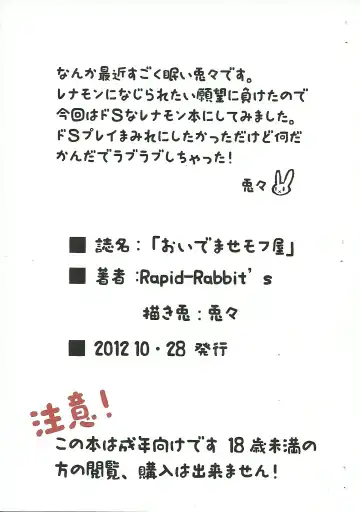 なんか最近すごく眠い兎々です。
レナモンになじられたい願望に負けたので
今回はドSなレナモン本にしてみました。
ドSプレイまみれにしたかっただけど何だ
かんだでラブラブしちゃった!
兎々
■ 誌名:「おいでませモフ屋」
■ 著者:Rapid-Rabbit's
描き兎:兎々
■ 2012 10・28 発行
注意!
この本は成年向けです 18歳未満の
方の閲覧、購入は出来ません!